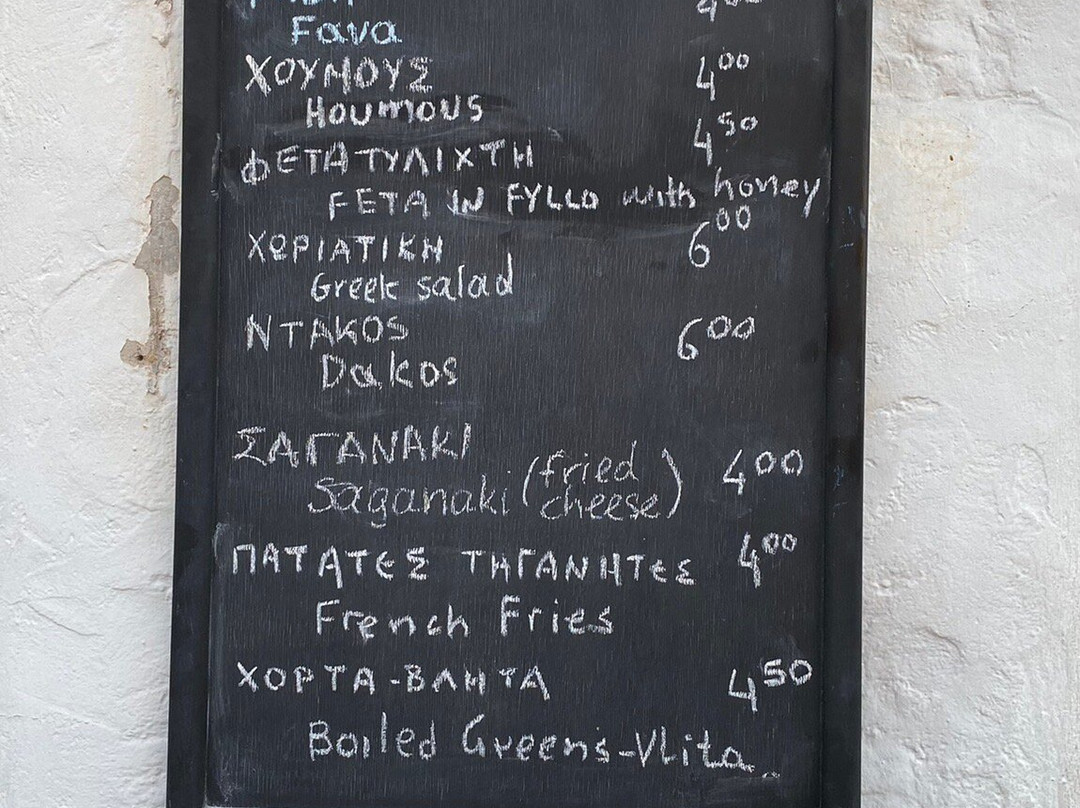 Fava
ΧΟΥΜΟΥΣ 4⁰⁰
Houmous
ΦΕΤΑ ΤΥΛΙΧΤΗ 4⁵⁰
FETA IN FYLLO with honey
ΧΩΡΙΑΤΙΚΗ 6⁰⁰
Greek salad
ΝΤΑΚΟS 6⁰⁰
Dakos
ΣΑΓΑΝΑΚΙ
Saganaki (fried cheese) 4⁰⁰
ΠΑΤΑΤΕΣ ΤΗΓΑΝΗΤΕΣ 4⁰⁰
French Fries
ΧΟΡΤΑ-ΒΛΗΤΑ 4⁵⁰
Boiled Greens-Vlita